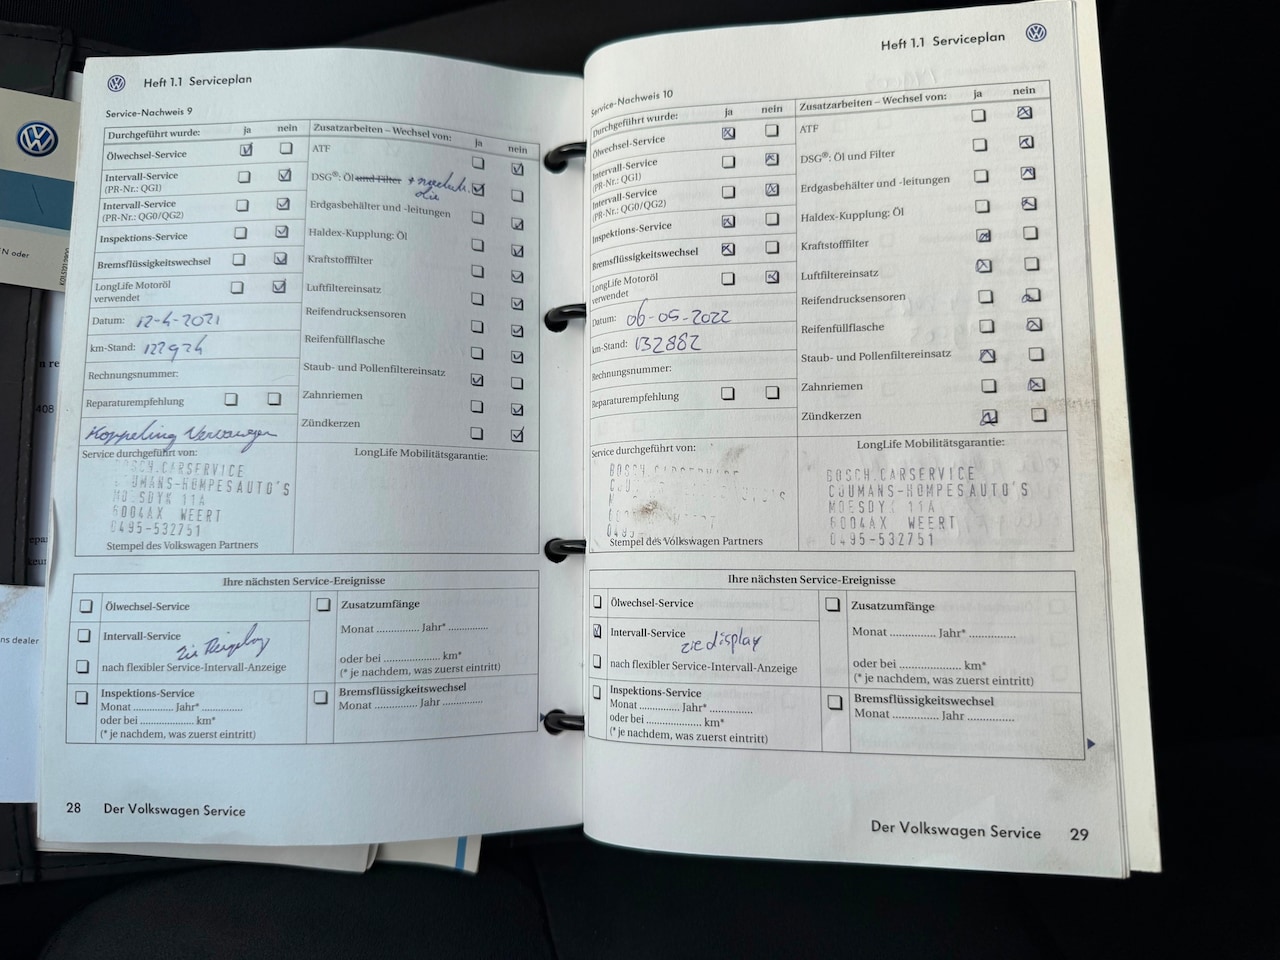 Heft 1.1 Serviceplan
Service-Nachweis 9
Durchgeführt wurde: ja nein
Ölwechsel-Service
Intervall-Service
(PR-Nr.: QG1)
Intervall-Service
(PR-Nr.: QG0/QG2)
Inspektions-Service
Bremsflüssigkeitswechsel
LongLife Motoröl
verwendet
Datum: 12-4-2021
km-Stand: 122924
Rechnungsnummer:
Reparaturempfehlung
Koppeling Vervangen
Zusatzarbeiten – Wechsel von: ja nein
ATF
DSG®: Öl und Filter
Erdgasbehälter und -leitungen
Haldex-Kupplung: Öl
Kraftstofffilter
Luftfiltereinsatz
Reifendrucksensoren
Reifenfüllflasche
Staub- und Pollenfiltereinsatz
Zahnriemen
Zündkerzen
Service durchgeführt von:
BOSCH CARSERVICE
COUMANS-HOMPESAUTO'S
MOESDYK 11A
6004AX WEERT
0495-532751
Stempel des Volkswagen Partners
LongLife Mobilitätsgarantie:
Ihre nächsten Service-Ereignisse
Ölwechsel-Service
Intervall-Service
nach flexibler Service-Intervall-Anzeige
Inspektions-Service
Monat .............. Jahr* ..............
oder bei .................... km*
(* je nachdem, was zuerst eintritt)
Zusatzumfänge
Monat .............. Jahr* ..............
oder bei .................... km*
(* je nachdem, was zuerst eintritt)
Bremsflüssigkeitswechsel
Monat .............. Jahr ..............
28 Der Volkswagen Service
Heft 1.1 Serviceplan
Service-Nachweis 10
Durchgeführt wurde: ja nein
Ölwechsel-Service
Intervall-Service
(PR-Nr.: QG1)
Intervall-Service
(PR-Nr.: QG0/QG2)
Inspektions-Service
Bremsflüssigkeitswechsel
LongLife Motoröl
verwendet
Datum: 06-05-2022
km-Stand: 132882
Rechnungsnummer:
Reparaturempfehlung
Zusatzarbeiten – Wechsel von: ja nein
ATF
DSG®: Öl und Filter
Erdgasbehälter und -leitungen
Haldex-Kupplung: Öl
Kraftstofffilter
Luftfiltereinsatz
Reifendrucksensoren
Reifenfüllflasche
Staub- und Pollenfiltereinsatz
Zahnriemen
Zündkerzen
Service durchgeführt von:
BOSCH CARSERVICE
Stempel des Volkswagen Partners
LongLife Mobilitätsgarantie:
BOSCH CARSERVICE
COUMANS-HOMPESAUTO'S
MOESDYK 11A
6004AX WEERT
0495-532751
Ihre nächsten Service-Ereignisse
Ölwechsel-Service
Intervall-Service
zie display
nach flexibler Service-Intervall-Anzeige
Inspektions-Service
Monat .............. Jahr* ..............
oder bei .................... km*
(* je nachdem, was zuerst eintritt)
Zusatzumfänge
Monat .............. Jahr* ..............
oder bei .................... km*
(* je nachdem, was zuerst eintritt)
Bremsflüssigkeitswechsel
Monat .............. Jahr ..............
Der Volkswagen Service 29